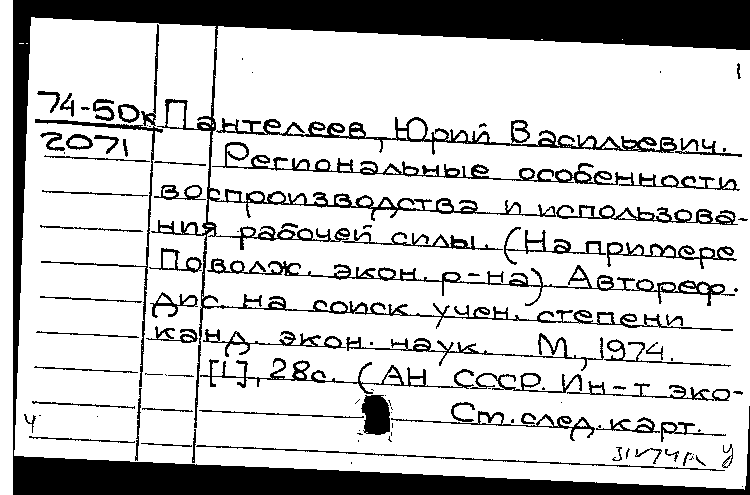 1
74-50к Пантелеев, Юрий Васильевич.
2071
Региональные особенности
воспроизводства и использова-
ния рабочей силы. (На примере
Поволж. экон. р-на). Автореф.
дис. на соиск. учен. степени
канд. экон. наук. М., 1974.
[1], 28с. (АН СССР. Ин-т эко-
Ст. след. карт.